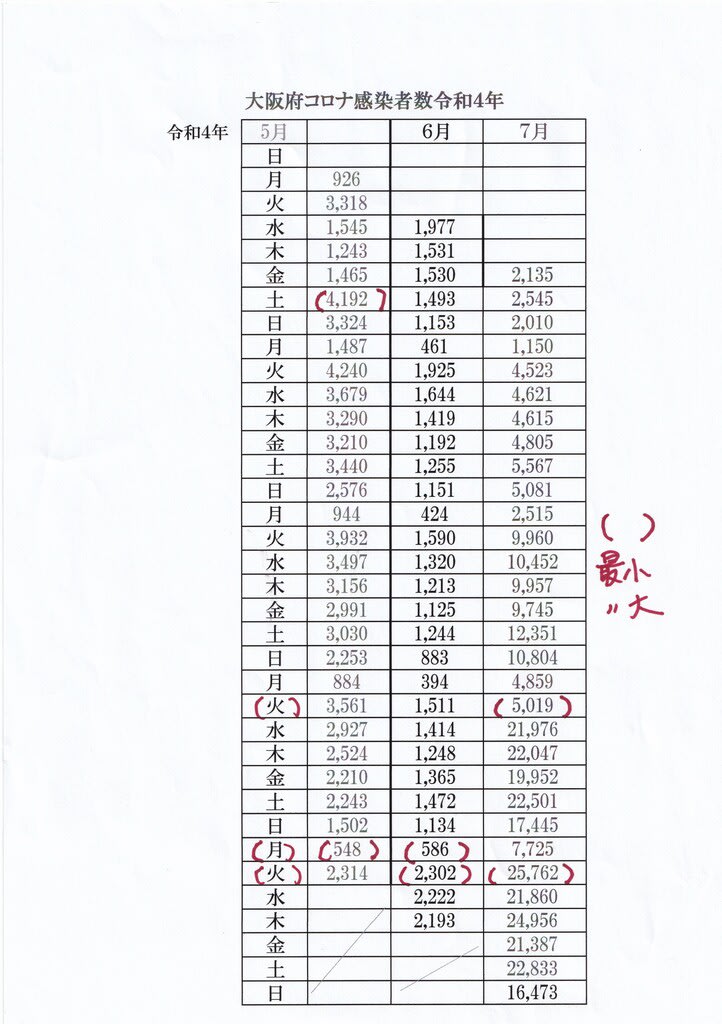 大阪府コロナ感染者数令和4年
令和4年 5月 6月 7月
日
月 926
火 3,318
水 1,545 1,977
木 1,243 1,531
金 1,465 1,530 2,135
土 (4,192) 1,493 2,545
日 3,324 1,153 2,010
月 1,487 461 1,150
火 4,240 1,925 4,523
水 3,679 1,644 4,621
木 3,290 1,419 4,615
金 3,210 1,192 4,805
土 3,440 1,255 5,567
日 2,576 1,151 5,081
月 944 424 2,515
火 3,932 1,590 9,960
水 3,497 1,320 10,452
木 3,156 1,213 9,957
金 2,991 1,125 9,745
土 3,030 1,244 12,351
日 2,253 883 10,804
月 884 394 4,859
(火) 3,561 1,511 (5,019)
水 2,927 1,414 21,976
木 2,524 1,248 22,047
金 2,210 1,365 19,952
土 2,243 1,472 22,501
日 1,502 1,134 17,445
(月) (548) (586) 7,725
(火) 2,314 (2,302) (25,762)
水 2,222 21,860
木 2,193 24,956
金 21,387
土 22,833
日 16,473
( )
最小
〃大